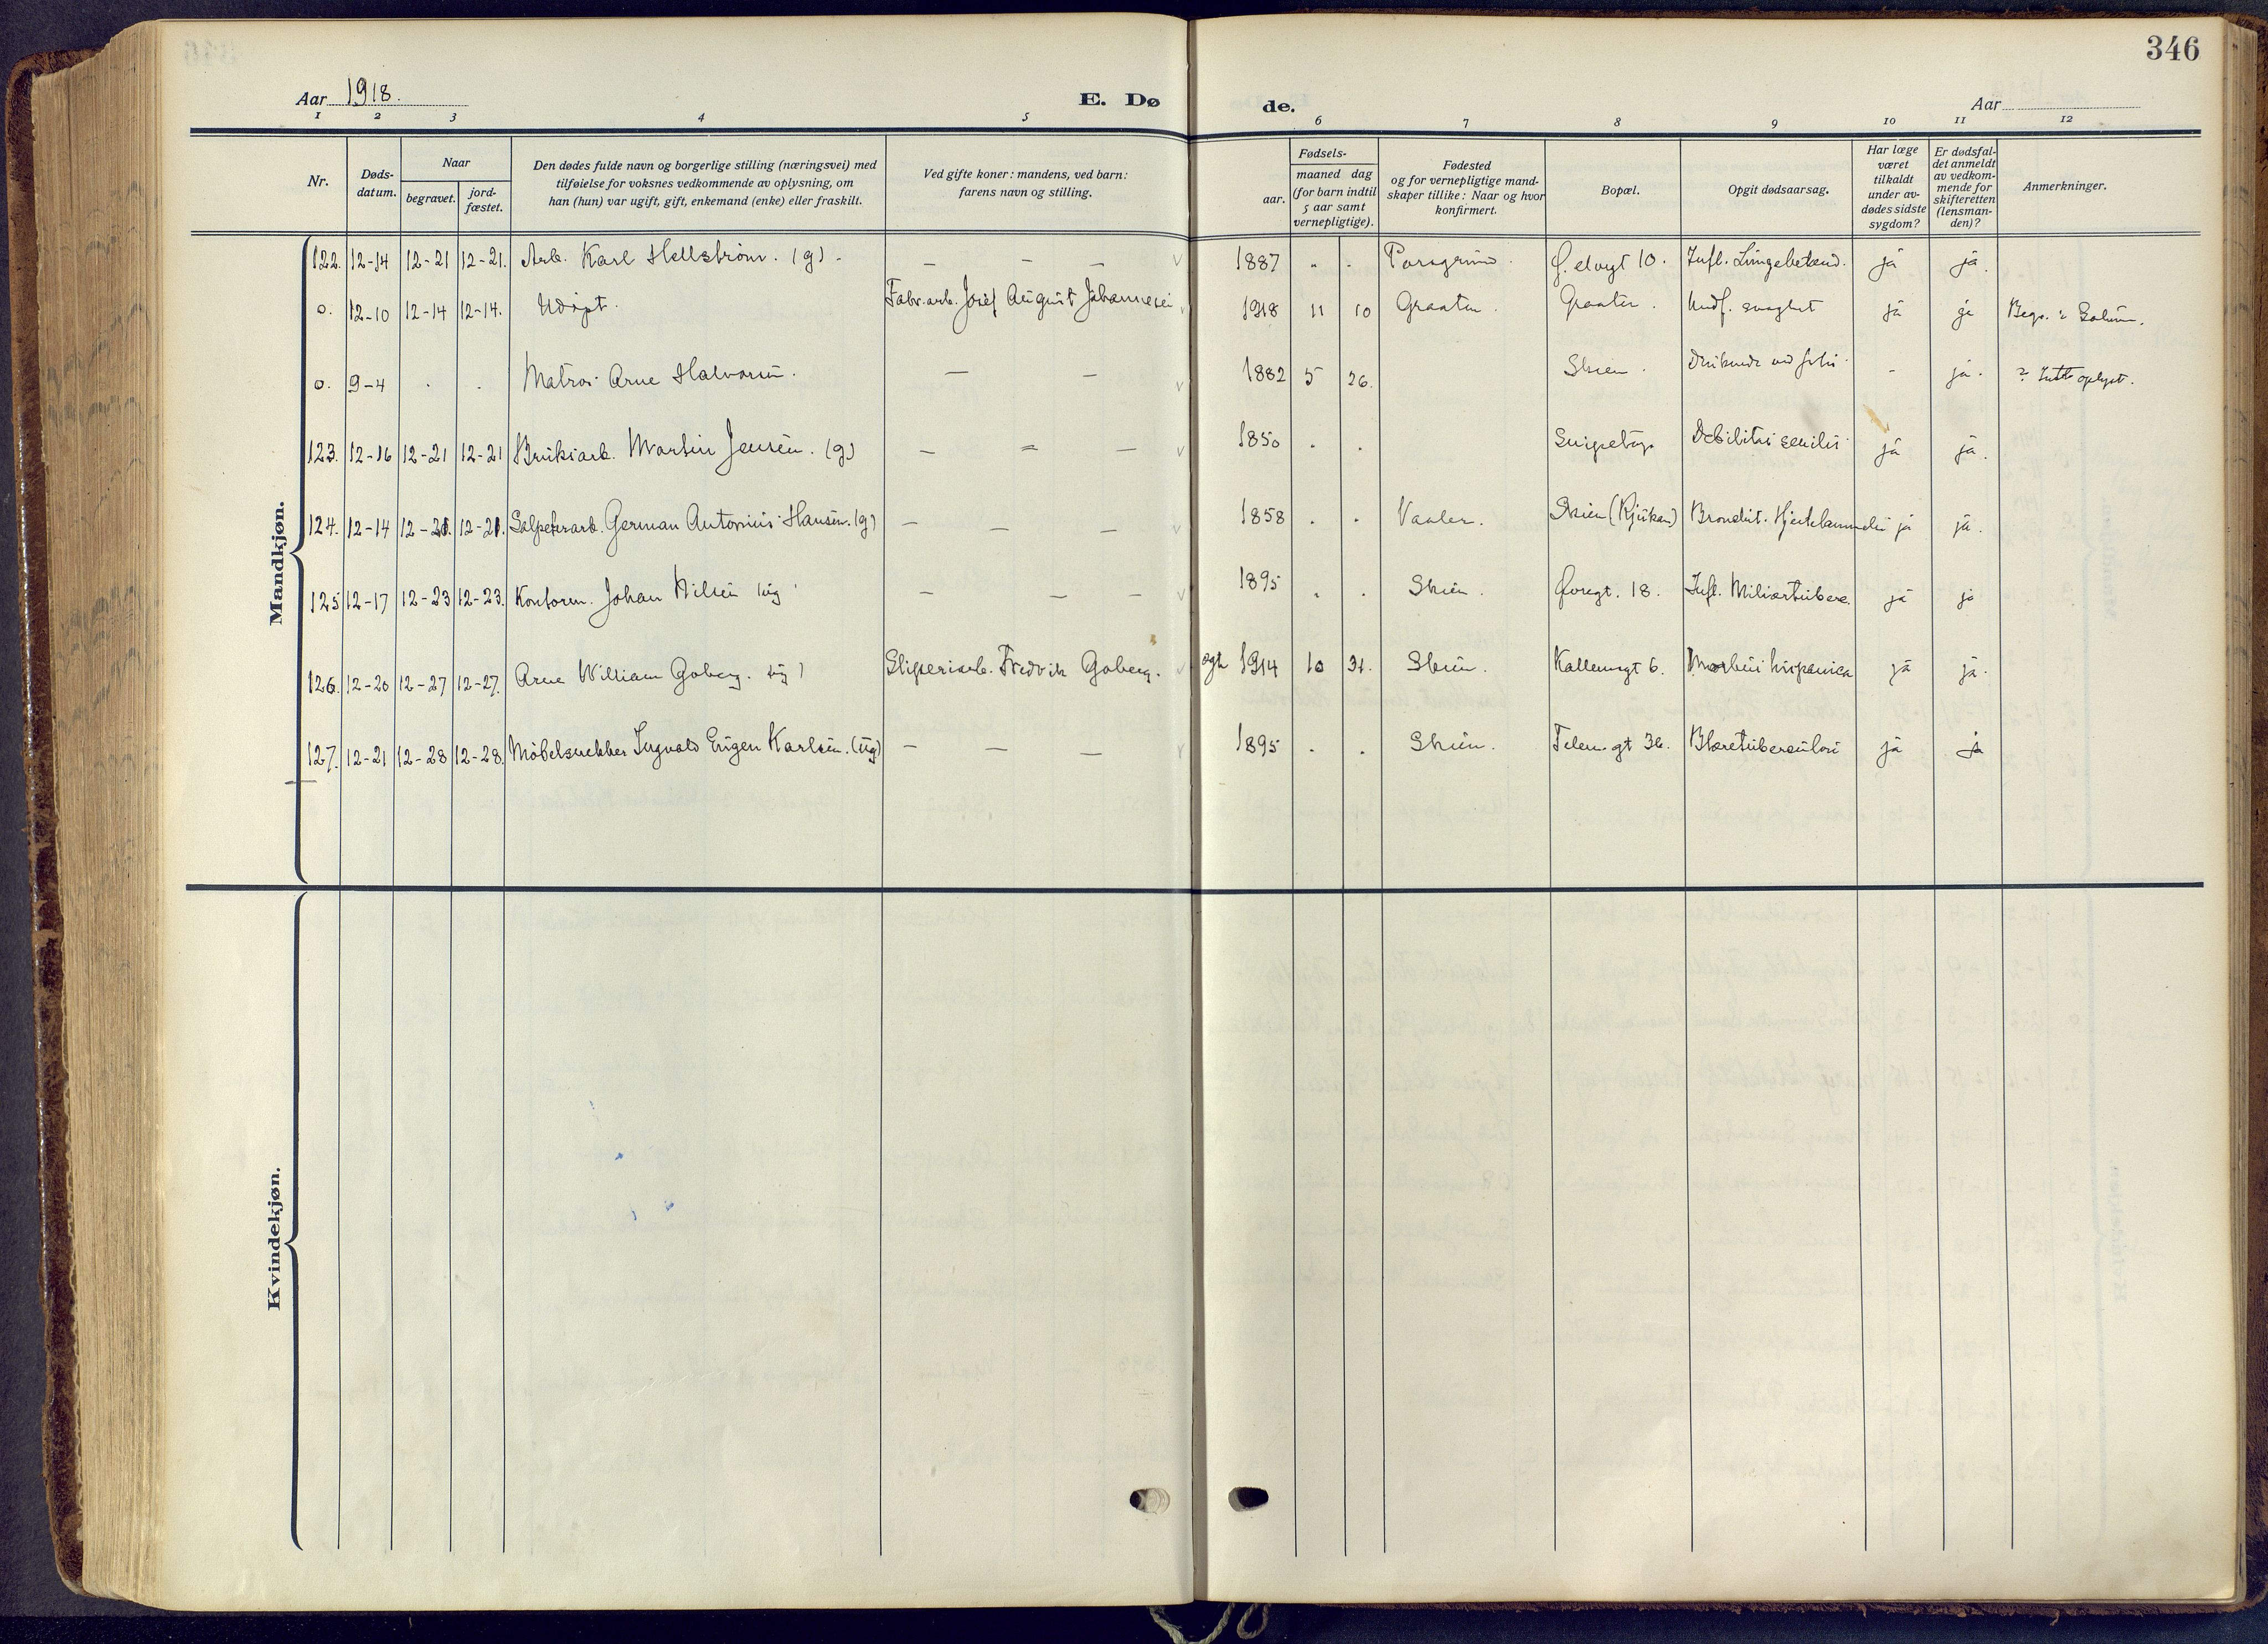 346
Aar 1918.
E. Dø de.
Aar
1 2 3 4 5 6 7 8 9 10 11 12
Nr.
Døds-
datum.
Naar
begravet.
jord-
fæstet.
Den dødes fulde navn og borgerlige stilling (næringsvei) med
tilføielse for voksnes vedkommende av oplysning, om
han (hun) var ugift, gift, enkemand (enke) eller fraskilt.
Ved gifte koner: mandens, ved barn:
farens navn og stilling.
Fødsels-
aar.
maaned dag
(for barn indtil
5 aar samt
vernepligtige).
Fødested
og for vernepligtige mand-
skaper tillike: Naar og hvor
konfirmert.
Bopæl.
Opgit dødsaarsag.
Har læge
været
tilkaldt
under av-
dødes sidste
sygdom?
Er dødsfal-
det anmeldt
av vedkom-
mende for
skifteretten
(lensman-
den)?
Anmerkninger.
Mandkjøn.
122. 12-14 12-21 12-21. Arb. Karl Hellstrøm. (g) - — — — 1887 . . Porsgrund. Ø. elvegt 10. Infl. Lungebetænd. ja ja.
0. 12-10 12-14 12-14. Udøpt. Fabr.arb. Josef August Johannesen 1918 11 10 Graaten. Graaten. Medf. svaghet ja ja Begr. i Solum.
0. 9-4 . . Matros Arne Halvorsen. — — 1882 5 26. Skien. Druknede ved forlis. - ja. ? Intet oplyst.
123. 12-16 12-21 12-21 Bruksarb. Martin Jensen. (g) — — — 1850 . . Snipetorp Debilitas senilis ja ja.
124. 12-14 12-21. 12-21. Salpeterarb. German Antonius Hansen. (g) — — — 1858 . . Vaaler. Skien (Rjukan) Bronchit. Hjertelammelse ja ja.
125 12-17 12-23 12-23. Kontorm. Johan Nilsen (ug) — — — 1895 . . Skien. Øvregt. 18. Infl. Miliærtuberc. ja ja
126. 12-20 12-27 12-27. Arne William Goberg. (ug) Sliperiarb. Fredrik Goberg. ægte 1914 10 31. Skien. Kallemsgt 6. Morbus hispanica ja ja.
127. 12-21 12-28 12-28. Møbelsnekker Ingvald Eugen Karlsen. (ug) — — — 1895 . . Skien. Telem.gt 36. Blæretuberculose ja ja
Kvindekjøn.